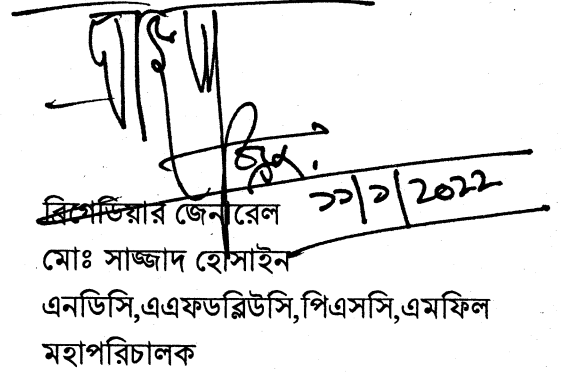 ১১/১/2022
ব্রিগেডিয়ার জেনারেল
মোঃ সাজ্জাদ হোসাইন
এনডিসি,এএফডব্লিউসি,পিএসসি,এমফিল
মহাপরিচালক